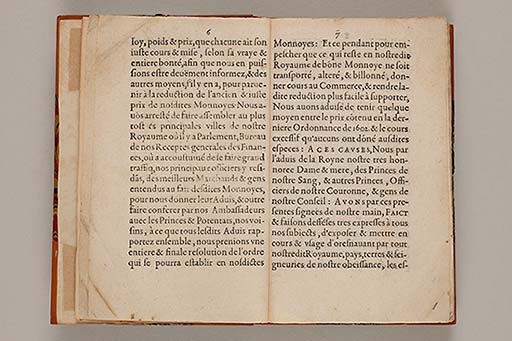 6
loy, poids & prix, que chacune ait son
iuste cours & mise, selon sa vraye &
entiere bonté, afin que nous en puis-
sions estre deuëment informez, & des
autres moyens, s'il y en a, pour parue-
nir à la reduction de l'ancien & iuste
prix de nosdites Monnoyes Nous a-
uõs arresté de faire assembler au plus
tost és principales villes de nostre
Royaume où il y a Parlement, Bureau
de nos Receptes generales des Finan-
ces, où a accoustumé de se faire grand
traffiq, nos principaux officiers y resi-
dãs, des meilleurs Marchands & gens
entendus au fait desdites Monnoyes,
pour nous donner leur Aduis, & outre
faire conferer par nos Ambassadeurs
auec les Princes & Potentats, nos voi-
sins, à ce que tous lesdits Aduis rap-
portez ensemble, nous prenions vne
entiere & finale resolution de l'ordre
qui se pourra establir en nosdictes
7
Monnoyes: Et ce pendant pour em-
pescher que ce qui reste en nostredit
Royaume de bõne Monnoye ne soit
transporté, alteré, & billonné, don-
ner cours au Commerce, & rendre la-
dite reduction plus facile à supporter,
Nous auons aduisé de tenir quelque
moyen entre le prix cõtenu en la der-
niere Ordonnance de 1602. & le cours
excessif qu'aucuns ont dõné ausdites
especes: A CES CAVSES, Nous par
l'aduis de la Royne nostre tres hon-
noree Dame & mere, des Princes de
nostre Sang, & autres Princes, Offi-
ciers de nostre Couronne, & gens de
nostre Conseil: AVONS par ces pre-
sentes signées de nostre main, FAICT
& faisons deffẽses tres expresses à tous
nos subiects, d'exposer & mettre en
cours & vsage d'oresnauant par tout
nostredit Royaume, pays, terres & sei-
gneuries de nostre obeissance, les es-